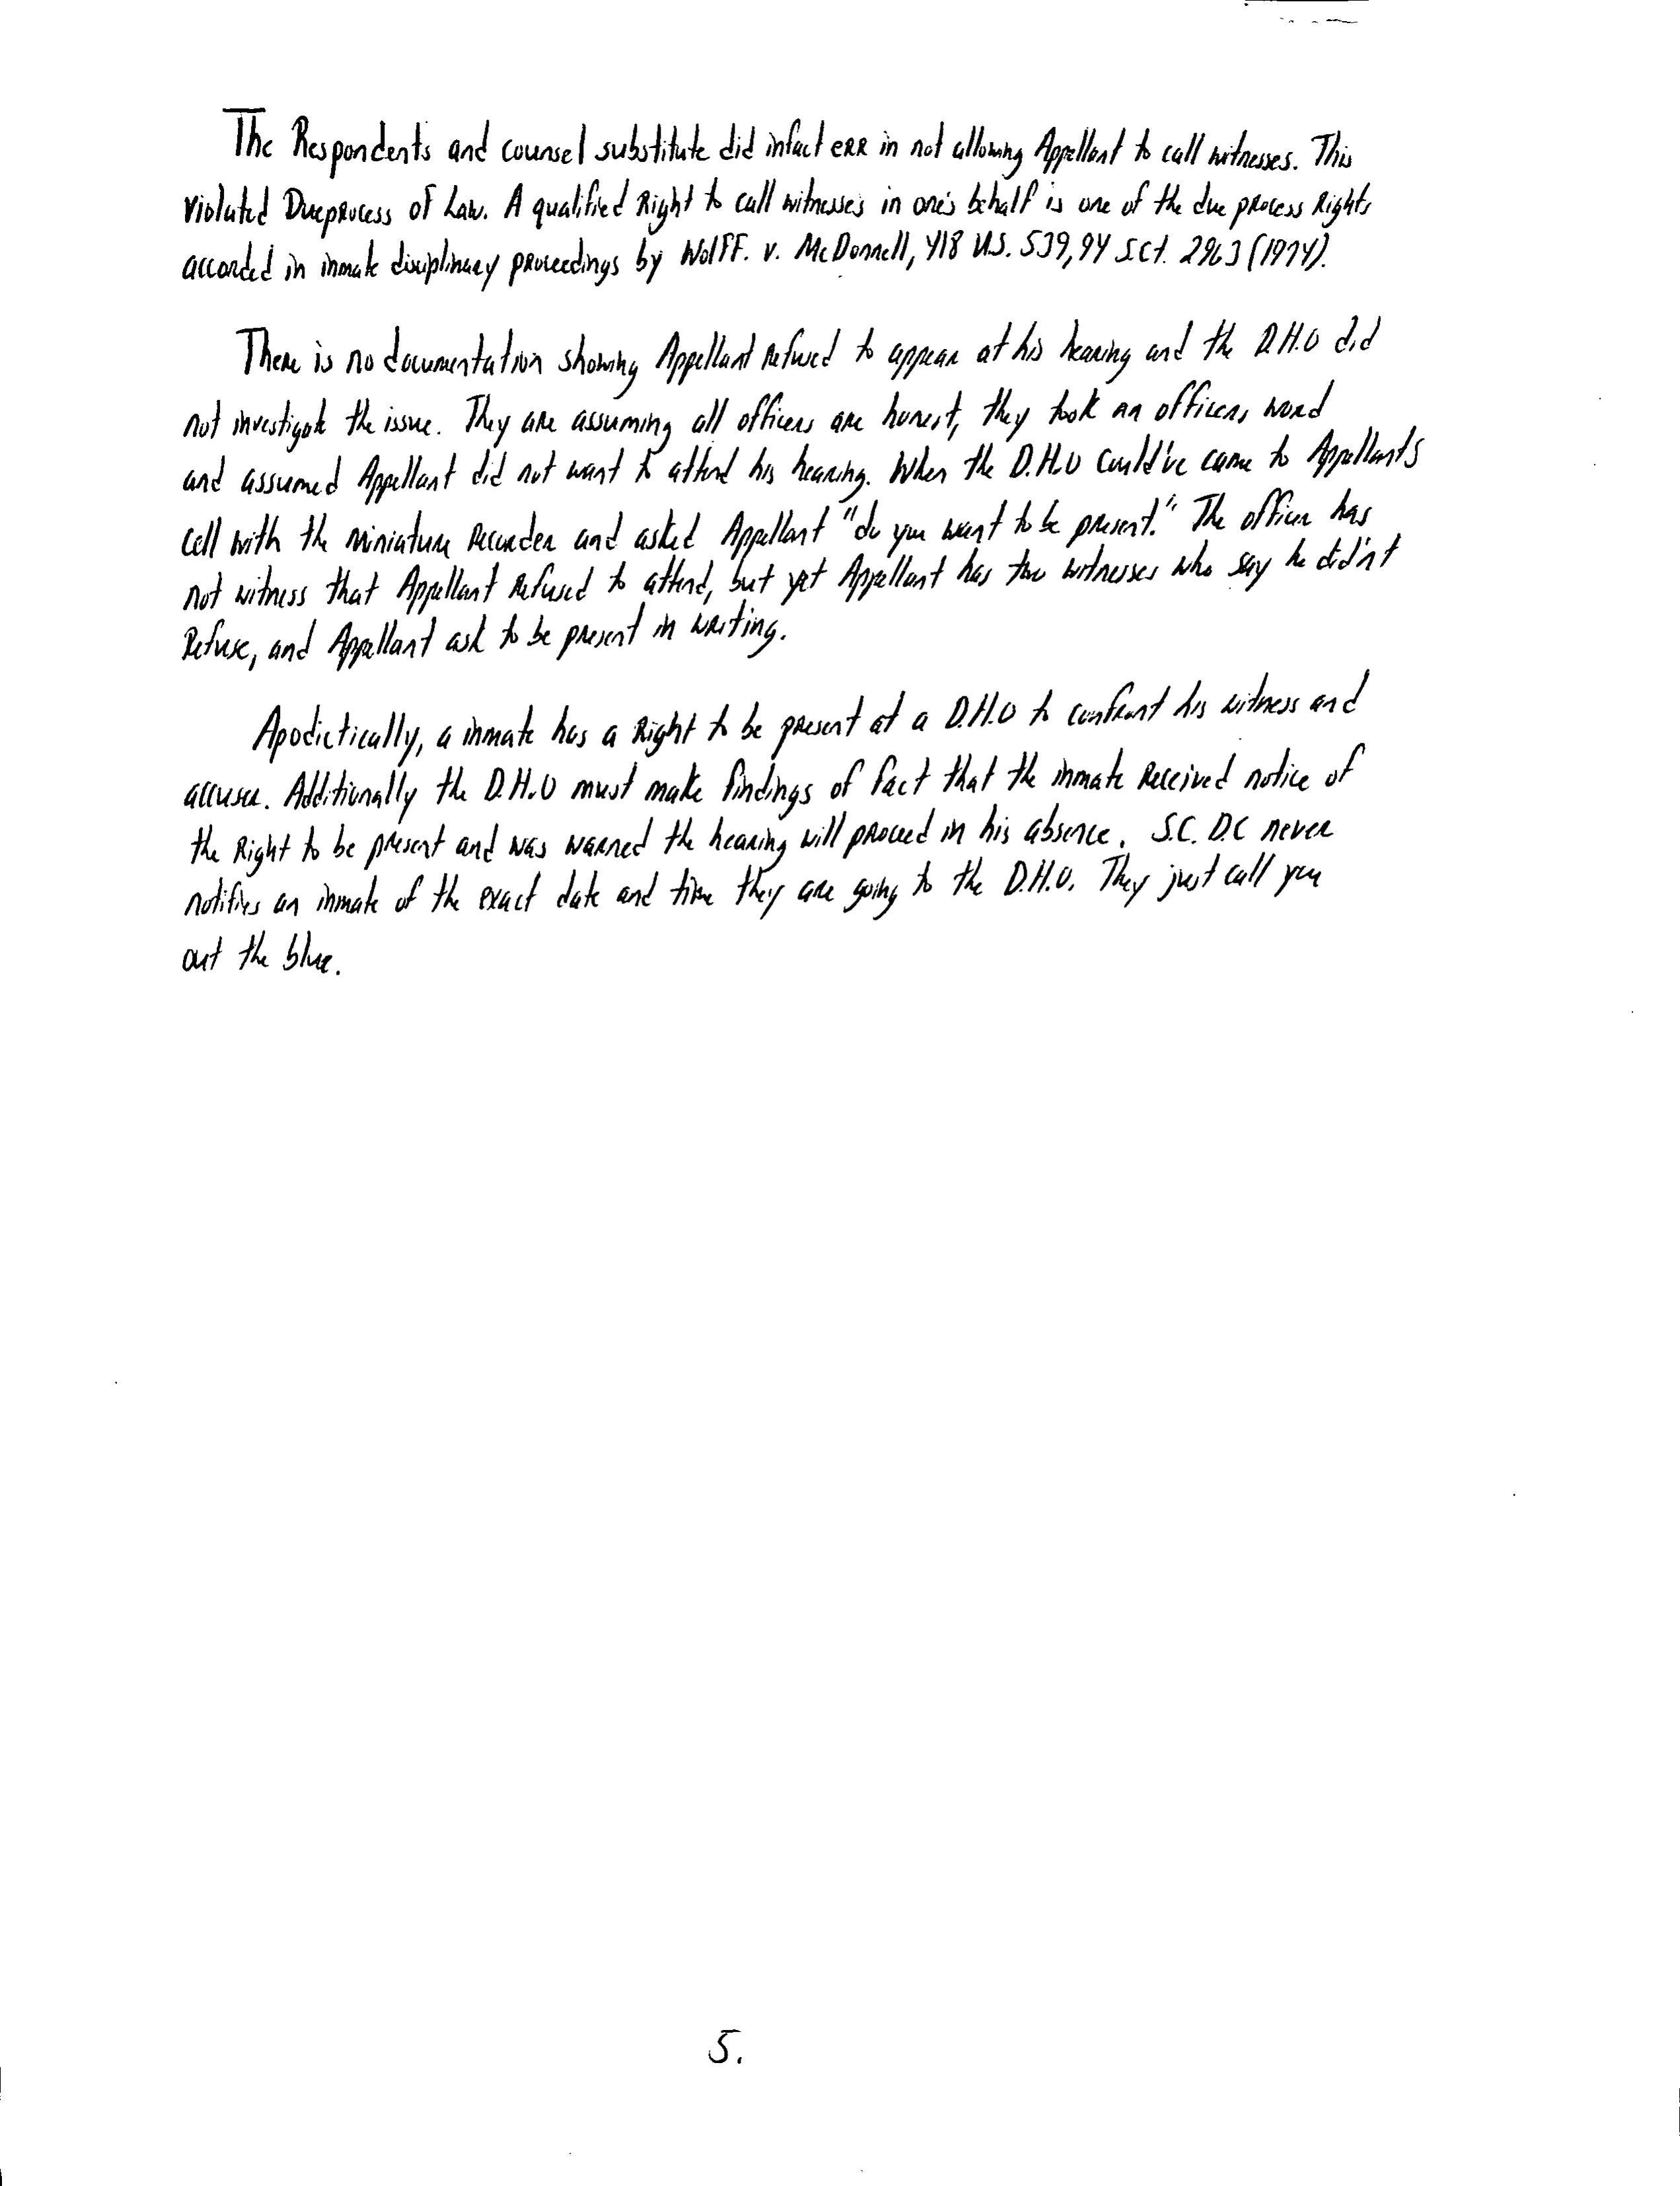 The Respondents and counsel substitute did infact err in not allowing Appellant to call witnesses. This
violated Dueprocess of Law. A qualified Right to call witnesses in one's behalf is one of the due process Rights
accorded in inmate disciplinary proceedings by Wolff. v. McDonnell, 418 U.S. 539, 94 S.Ct. 2963 (1974).
There is no documentation showing Appellant Refused to appear at his hearing and the D.H.O did
not investigate the issue. They are assuming all officers are honest, they took an officers word
and assumed Appellant did not want to attend his hearing. When the D.H.O could've came to Appellants
cell with the miniature Recorder and asked Appellant "do you want to be present." The officer has
not witness that Appellant Refused to attend, but yet Appellant has two witnesses who say he did'nt
Refuse, and Appellant ask to be present in writing.
Apodictically, a inmate has a Right to be present at a D.H.O to confront his witness and
accuser. Additionally the D.H.O must make findings of fact that the inmate Received notice of
the Right to be present and was warned the hearing will proceed in his absence. S.C. D.C never
notifies an inmate of the exact date and time they are going to the D.H.O. They just call you
out the blue.
5.